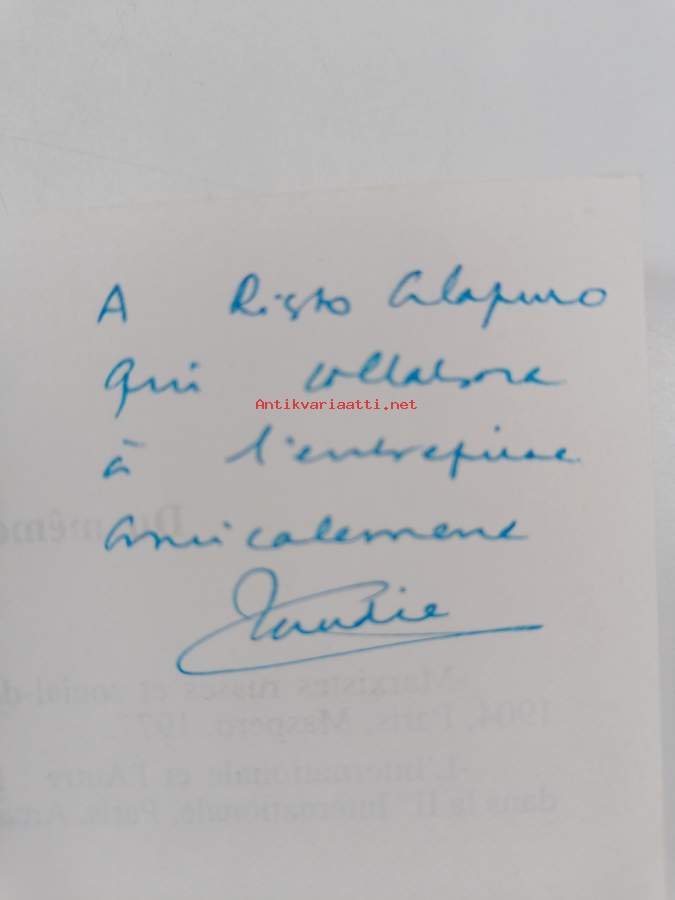 A Risto Alapuro
qui collabora
Antikvariaatti.net
à l'entreprise
amicalement
Claudie
Du même
-Marxistes russes et social-d
1904, Paris, Maspero, 197
-L'Internationale et l'Autre
dans la IIe Internationale, Paris,